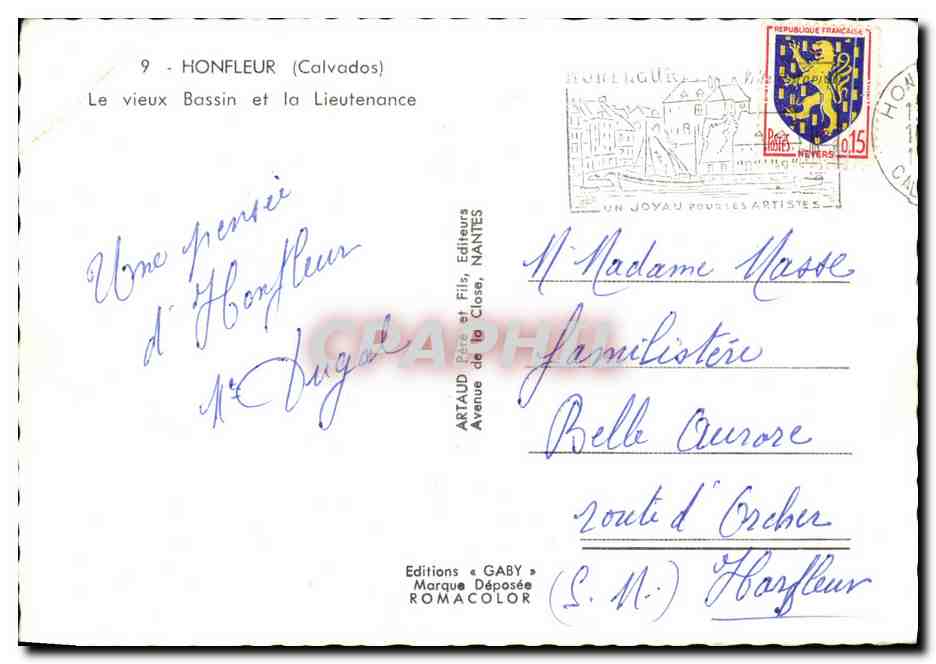 9 - HONFLEUR (Calvados)
Le vieux Bassin et la Lieutenance
HONFLEUR
REPUBLIQUE FRANÇAISE
POSTES
0,15
NEVERS
UN JOYAU POUR LES ARTISTES
HON
CAL
Une pensée
d'Honfleur
Mr Dugal
ARTAUD Père et Fils, Editeurs
Avenue de la Close, NANTES
CPAPHIL
Mr Madame Masse
familistère
Belle Aurore
route d'Orcher
(S. M.) Harfleur
Editions « GABY »
Marque Déposée
ROMACOLOR